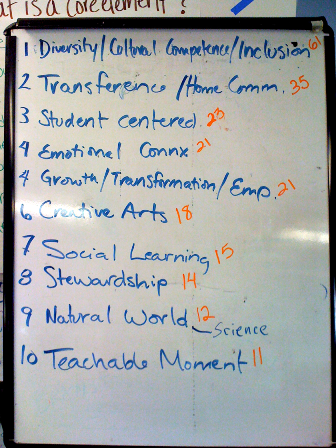 at is a core element?
1 Diversity/Cultural Competence/Inclusion 61
2 Transference /Home Comm. 35
3 Student centered 23
4 Emotional Connx 21
4 Growth/Transformation/Emp. 21
6 Creative Arts 18
7 Social Learning 15
8 Stewardship 14
9 Natural World 12
Science
10 Teachable Moment 11